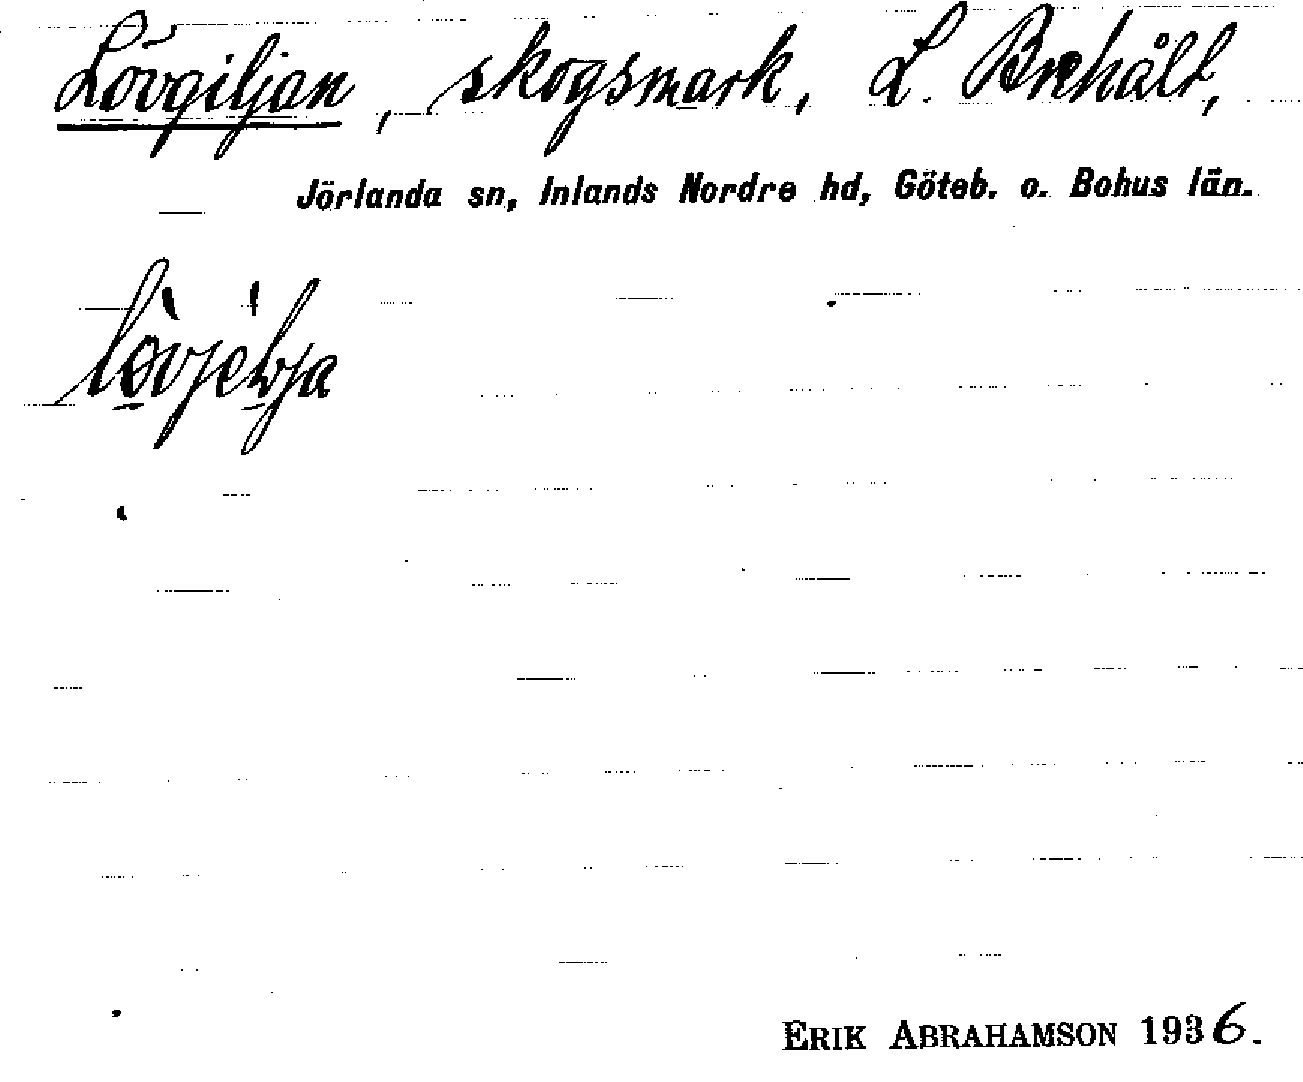 Lövgiljan, skogsmark, L. Brehålt,
Jörlanda sn, Inlands Nordre hd, Göteb. o. Bohus län.
ERIK ABRAHAMSON 1936.